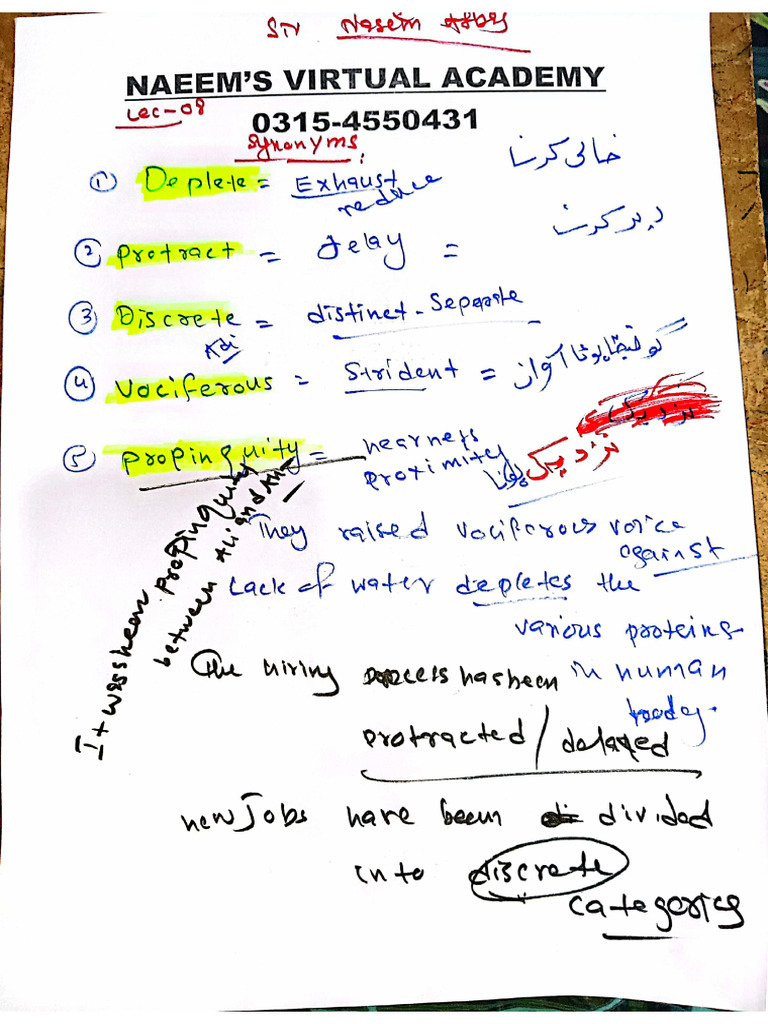 Sir Naeem Abbas
NAEEM'S VIRTUAL ACADEMY
Lec-08
0315-4550431
Synonyms:
① Deplete = Exhaust خالی کرنا
reduce
② Protract = delay = دیر کرنا
③ Discrete = distinct - Separate
④ Vociferous = Strident =
⑤ Propinquity = nearness
proximity نزدیک ہونا
نزدیک
They raised vociferous voice
against
Lack of water depletes the
various proteins
in human
body.
The hiring process has been
protracted / delayed
new Jobs have been divided
into discrete
categories
It was been propinquity
between Ali and